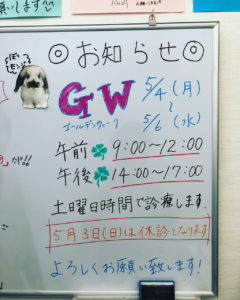 願いします!
◎お知らせ◎
GW 5/4(月)
~
ゴールデンウィーク 5/6(水)
午前 9:00~12:00
午後 14:00~17:00
土曜日時間で診療します.
5月3日(日)は休診となります
よろしくお願い致します!